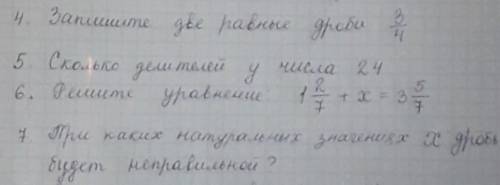 4. Запишите две равные дроби 3/4
5 Сколько делителей у числа 24
6. Решите уравнение: 1 2/7 + x = 3 5/7
7. При каких натуральных значениях x дробь
будет неправильной?